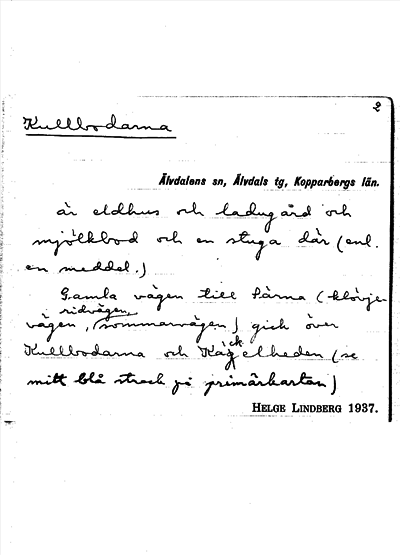 2
Kullbodarna
Älvdalens sn, Älvdals tg, Kopparbergs län.
är eldhus och ladugård och
mjölkbod och en stuga där (enl.
en meddel.)
Gamla vägen till Särna (klövje-
ridvägen,
vägen, sommarvägen) gick över
Kullbodarna och Käckelheden (se
mitt blå streck på primärkartan)
HELGE LINDBERG 1937.